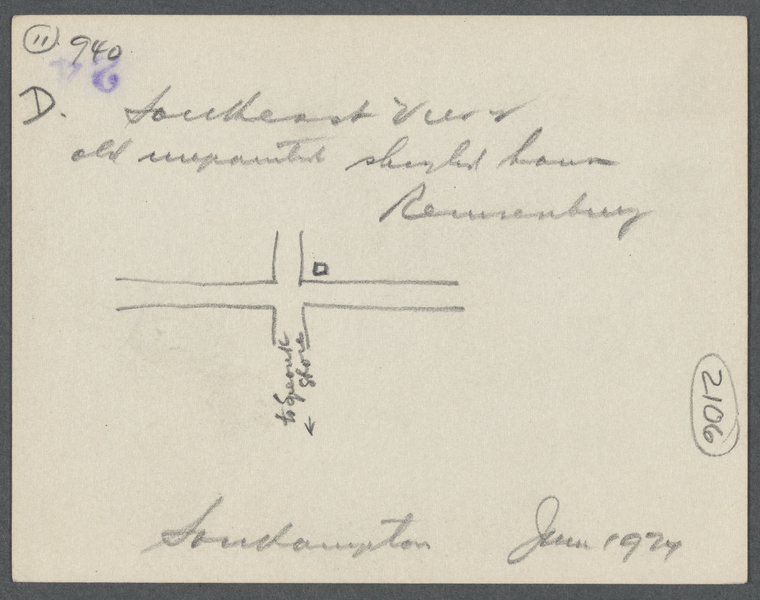 11 940
24
D. Southeast View
old unpainted shingled house
Remsenburg
to Speonk
Shore
2106
Southampton June 1924